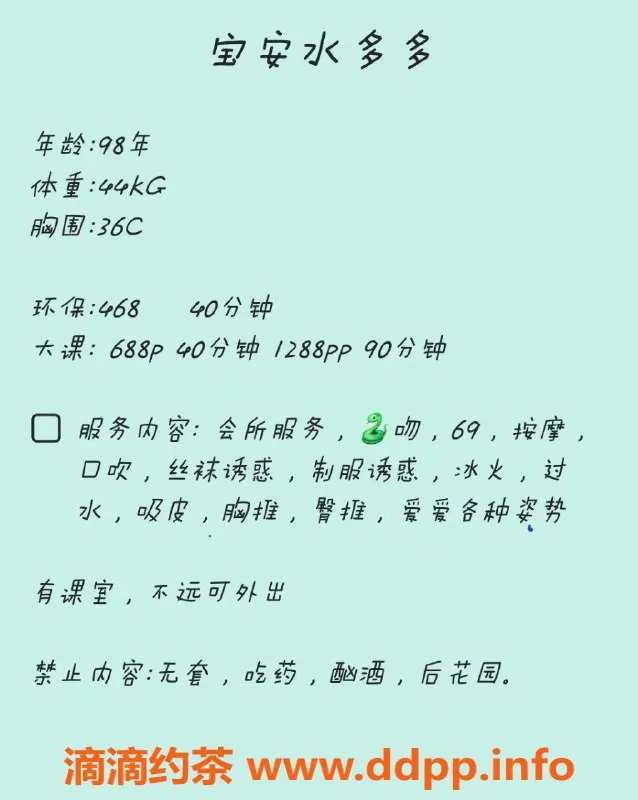 宝安水多多
年龄:98年
体重:44KG
胸围:36C
环保:468 40分钟
大课: 688p 40分钟 1288pp 90分钟
服务内容: 会所服务, 🐍吻, 69, 按摩,
口吹, 丝袜诱惑, 制服诱惑, 冰火, 过
水, 吸皮, 胸推, 臀推, 爱爱各种姿势
有课室, 不远可外出
禁止内容:无套, 吃药, 酗酒, 后花园。
滴滴约茶 www.ddpp.info